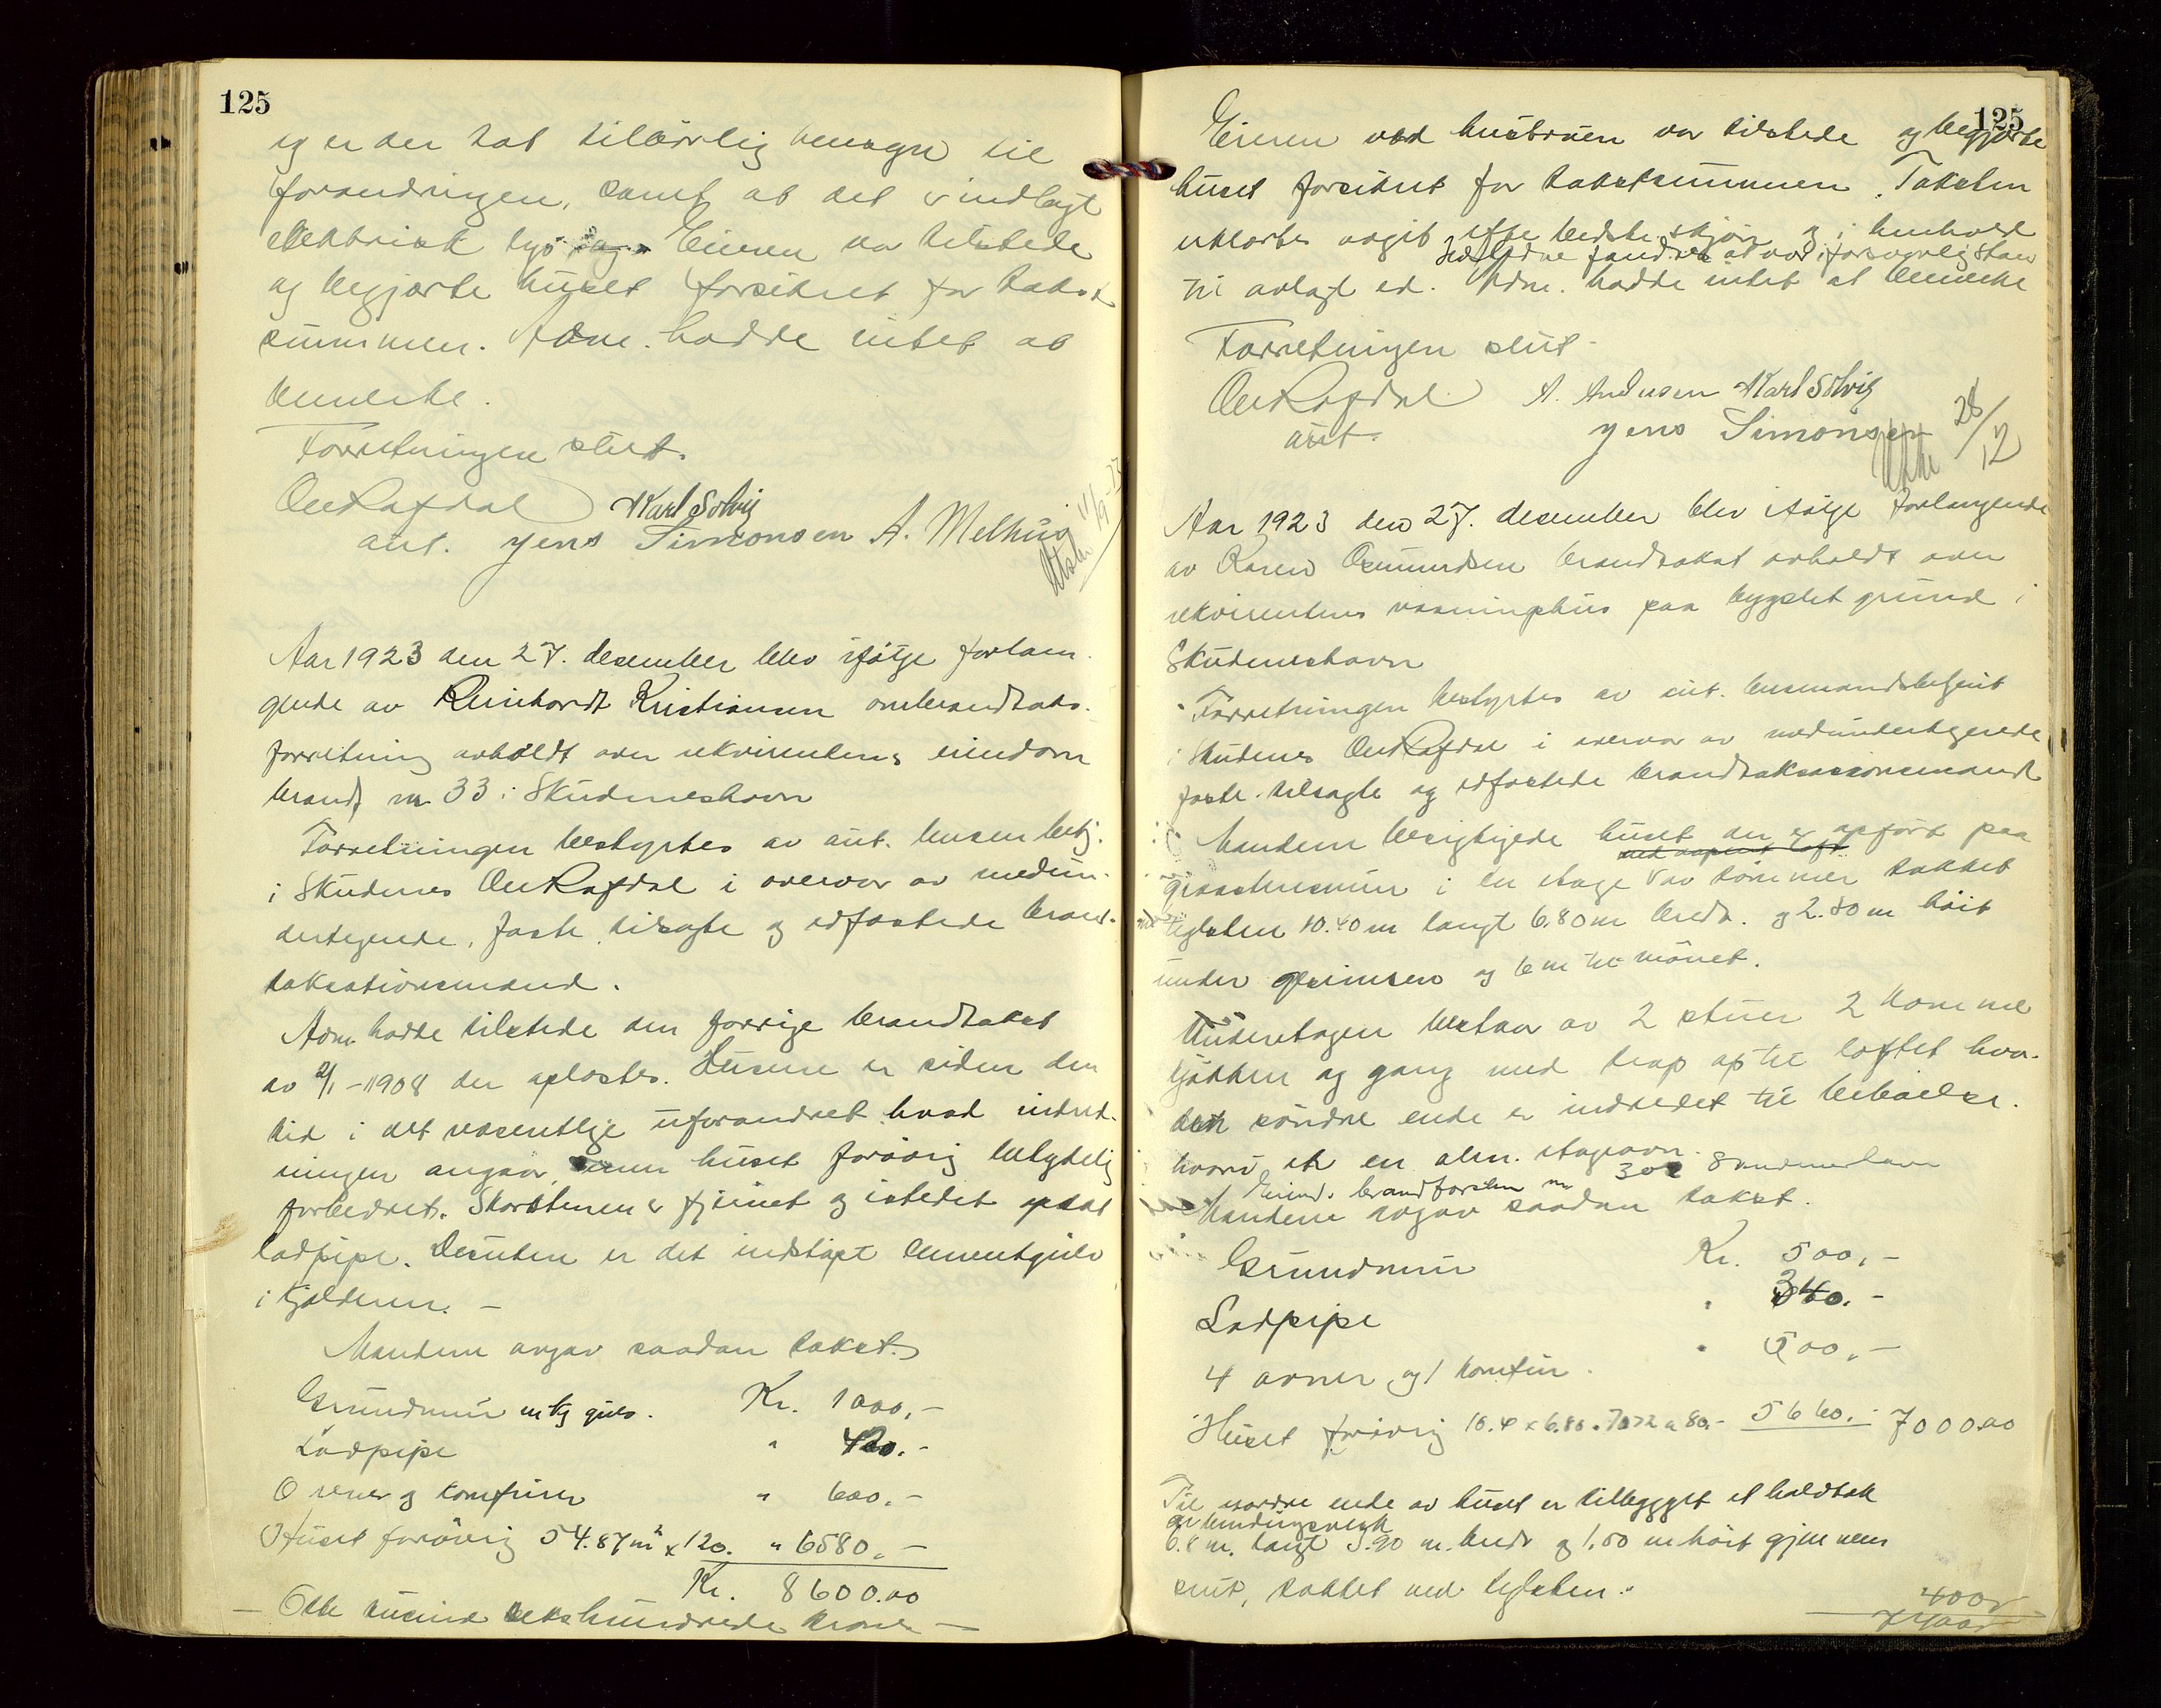 125
og er der tat tilbørlig hensyn til
forandringen, samt at det er indlagt
elektrisk lys. Eieren var tilstede
og begjærte huset forsikret for takst
summen. Adm. hadde intet at
bemerke.
Forretningen slut.
Ole Rafdal Karl Solvig
aut. Jens Simonsen A. Melhus
Utskr 11/9-23
Aar 1923 den 27. desember blev ifølge forlan-
gende av Reinhardt Kristiansen ombrandtakst-
forretning avholdt over rekvirentens eiendom
brandf nr 33 i Skudeneshavn
Forretningen bestyrtes av aut. lensm betj.
i Skudenes Ole Rafdal i overvær av medun-
dertegnede, faste tilsagte og edfæstede brand-
taksationsmænd.
Adm hadde tilstede den forrige brandtakst
av 2/1-1908 der oplæstes. Husene er siden den
tid i det væsentlige uforandret hvad indred-
ningen angaar, men huset forøvrig betydelig
forbedret. Skorstenen er fjernet og istedet opsat
lodpipe. Desuten er det indstøpt cementgulv
i kjælderen. -
Mændene avgav saadan takst.
Grundmur m kj gulv. Kr. 1000,-
Lodpipe " 420.-
Ovner og komfurer " 600.-
Huset forøvrig 54.87 m² x 120. " 6580.-
Kr. 8600.00
- Otte tusind sekshundrede kroner -
125
Eieren ved husbruen var tilstede og begjærte
huset forsikret for takstsummen. Taksten
erklærtes avgit efter bedste skjøn og i henhold
Ildstedne fandtes at være i forsvarlig stan
til avlagt ed. Adm. hadde intet at bemerke
Forretningen slut-
Ole Rafdal A. Andersen Karl Solvig
aut. Jens Simonsen
Utskr 28/12
Aar 1923 den 27. desember blev ifølge forlangende
av Karen Osmundsen brandtakst avholdt over
rekvirentens vaaningshus paa bygslet grund i
Skudeneshavn
Forretningen bestyrtes av aut. lensmandsbetjent
i Skudenes Ole Rafdal i overvær av medundertegnede
faste tilsagte og edfæstede brandtaksasionsmænd
Mændene besigtigede huset der er opført paa
med aapent loft
graastensmur i en etage av tømmer tækket
med teglsten 10.40 m langt 6.80 m bredt. og 2.80 m høit
under gesimsen og 6 m til mønet.
Underetagen bestaar av 2 stuer 2 kammer
kjøkken og gang med trap op til loftet hvor-
den søndre ende er indredet til beboelse.
hvori er en alm. etageovn.
Eiend. brandforsten nr 302 Skudeneshavn
Mændene avgav saadan takst.
Grundmur Kr. 500,-
Lodpipe " 340.-
4 ovner og 1 komfur " 500,-
Huset forøvrig 10.4 x 6.80 = 70.72 a 80.- 5660.- 7000.00
Til nordre ende av huset er tilbygget et halvtak
av bindingsverk
6.8 m. langt 3.90 m. bredt og 1.50 m høit gjennem
snit, tækket med teglsten.
400
7400